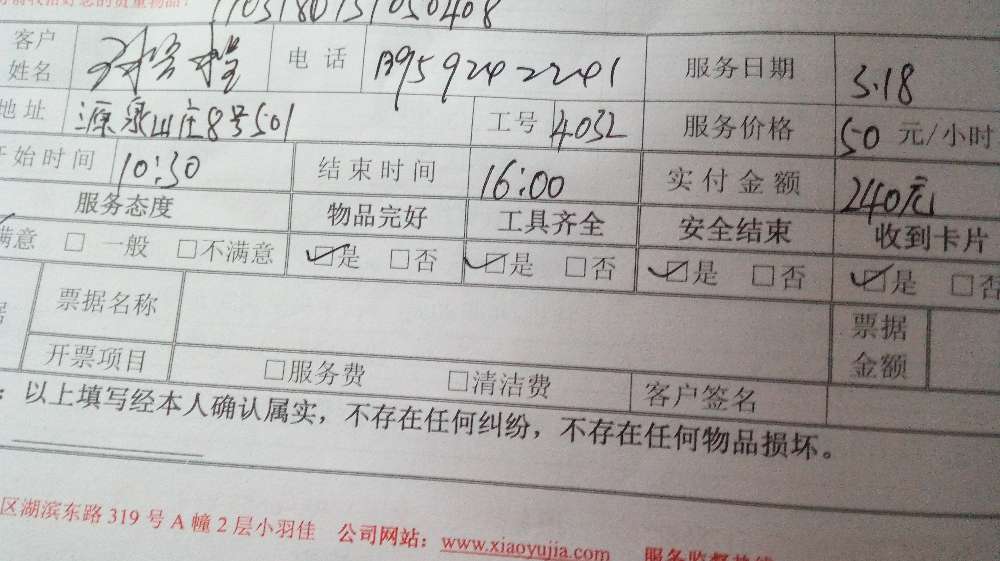 前收拾好您的贵重物品!
1103180131050408
客户姓名 电话 13959242241 服务日期 3.18
地址 源泉山庄8号501 工号 4032 服务价格 50 元/小时
开始时间 10:30 结束时间 16:00 实付金额 240元
服务态度 物品完好 工具齐全 安全结束 收到卡片
满意 □ 一般 □不满意 ☑是 □否 ☑是 □否 ☑是 □否 ☑是 □否
票据名称 票据金额
开票项目 □服务费 □清洁费 客户签名
：以上填写经本人确认属实，不存在任何纠纷，不存在任何物品损坏。
区湖滨东路 319 号 A 幢 2 层小羽佳 公司网站：www.xiaoyujia.com 服务监督热线